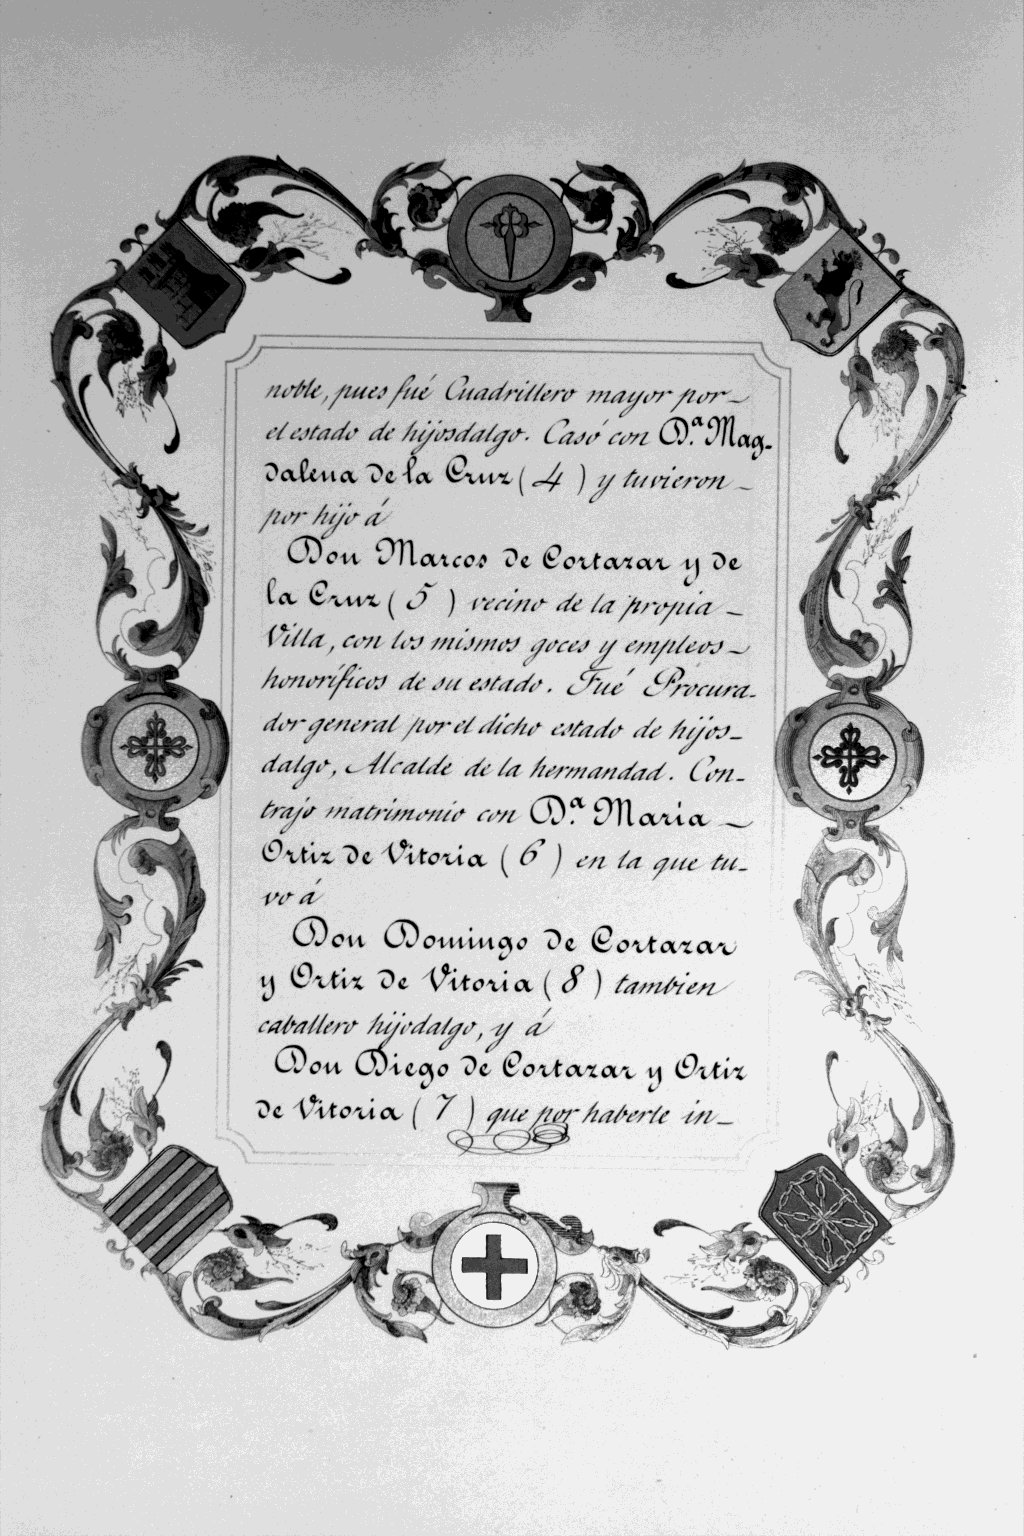 noble, pues fué Cuadrillero mayor por
el estado de hijosdalgo. Casó con D.ª Mag-
dalena de la Cruz (4) y tuvieron
por hijo á
Don Marcos de Cortazar y de
la Cruz (5) vecino de la propia
Villa, con los mismos goces y empleos
honoríficos de su estado. Fué Procura-
dor general por el dicho estado de hijos-
dalgo, Alcalde de la hermandad. Con-
trajo matrimonio con D.ª Maria
Ortiz de Vitoria (6) en la que tu-
vo á
Don Domingo de Cortazar
y Ortiz de Vitoria (8) tambien
caballero hijodalgo, y á
Don Diego de Cortazar y Ortiz
de Vitoria (7) que por haberle in-